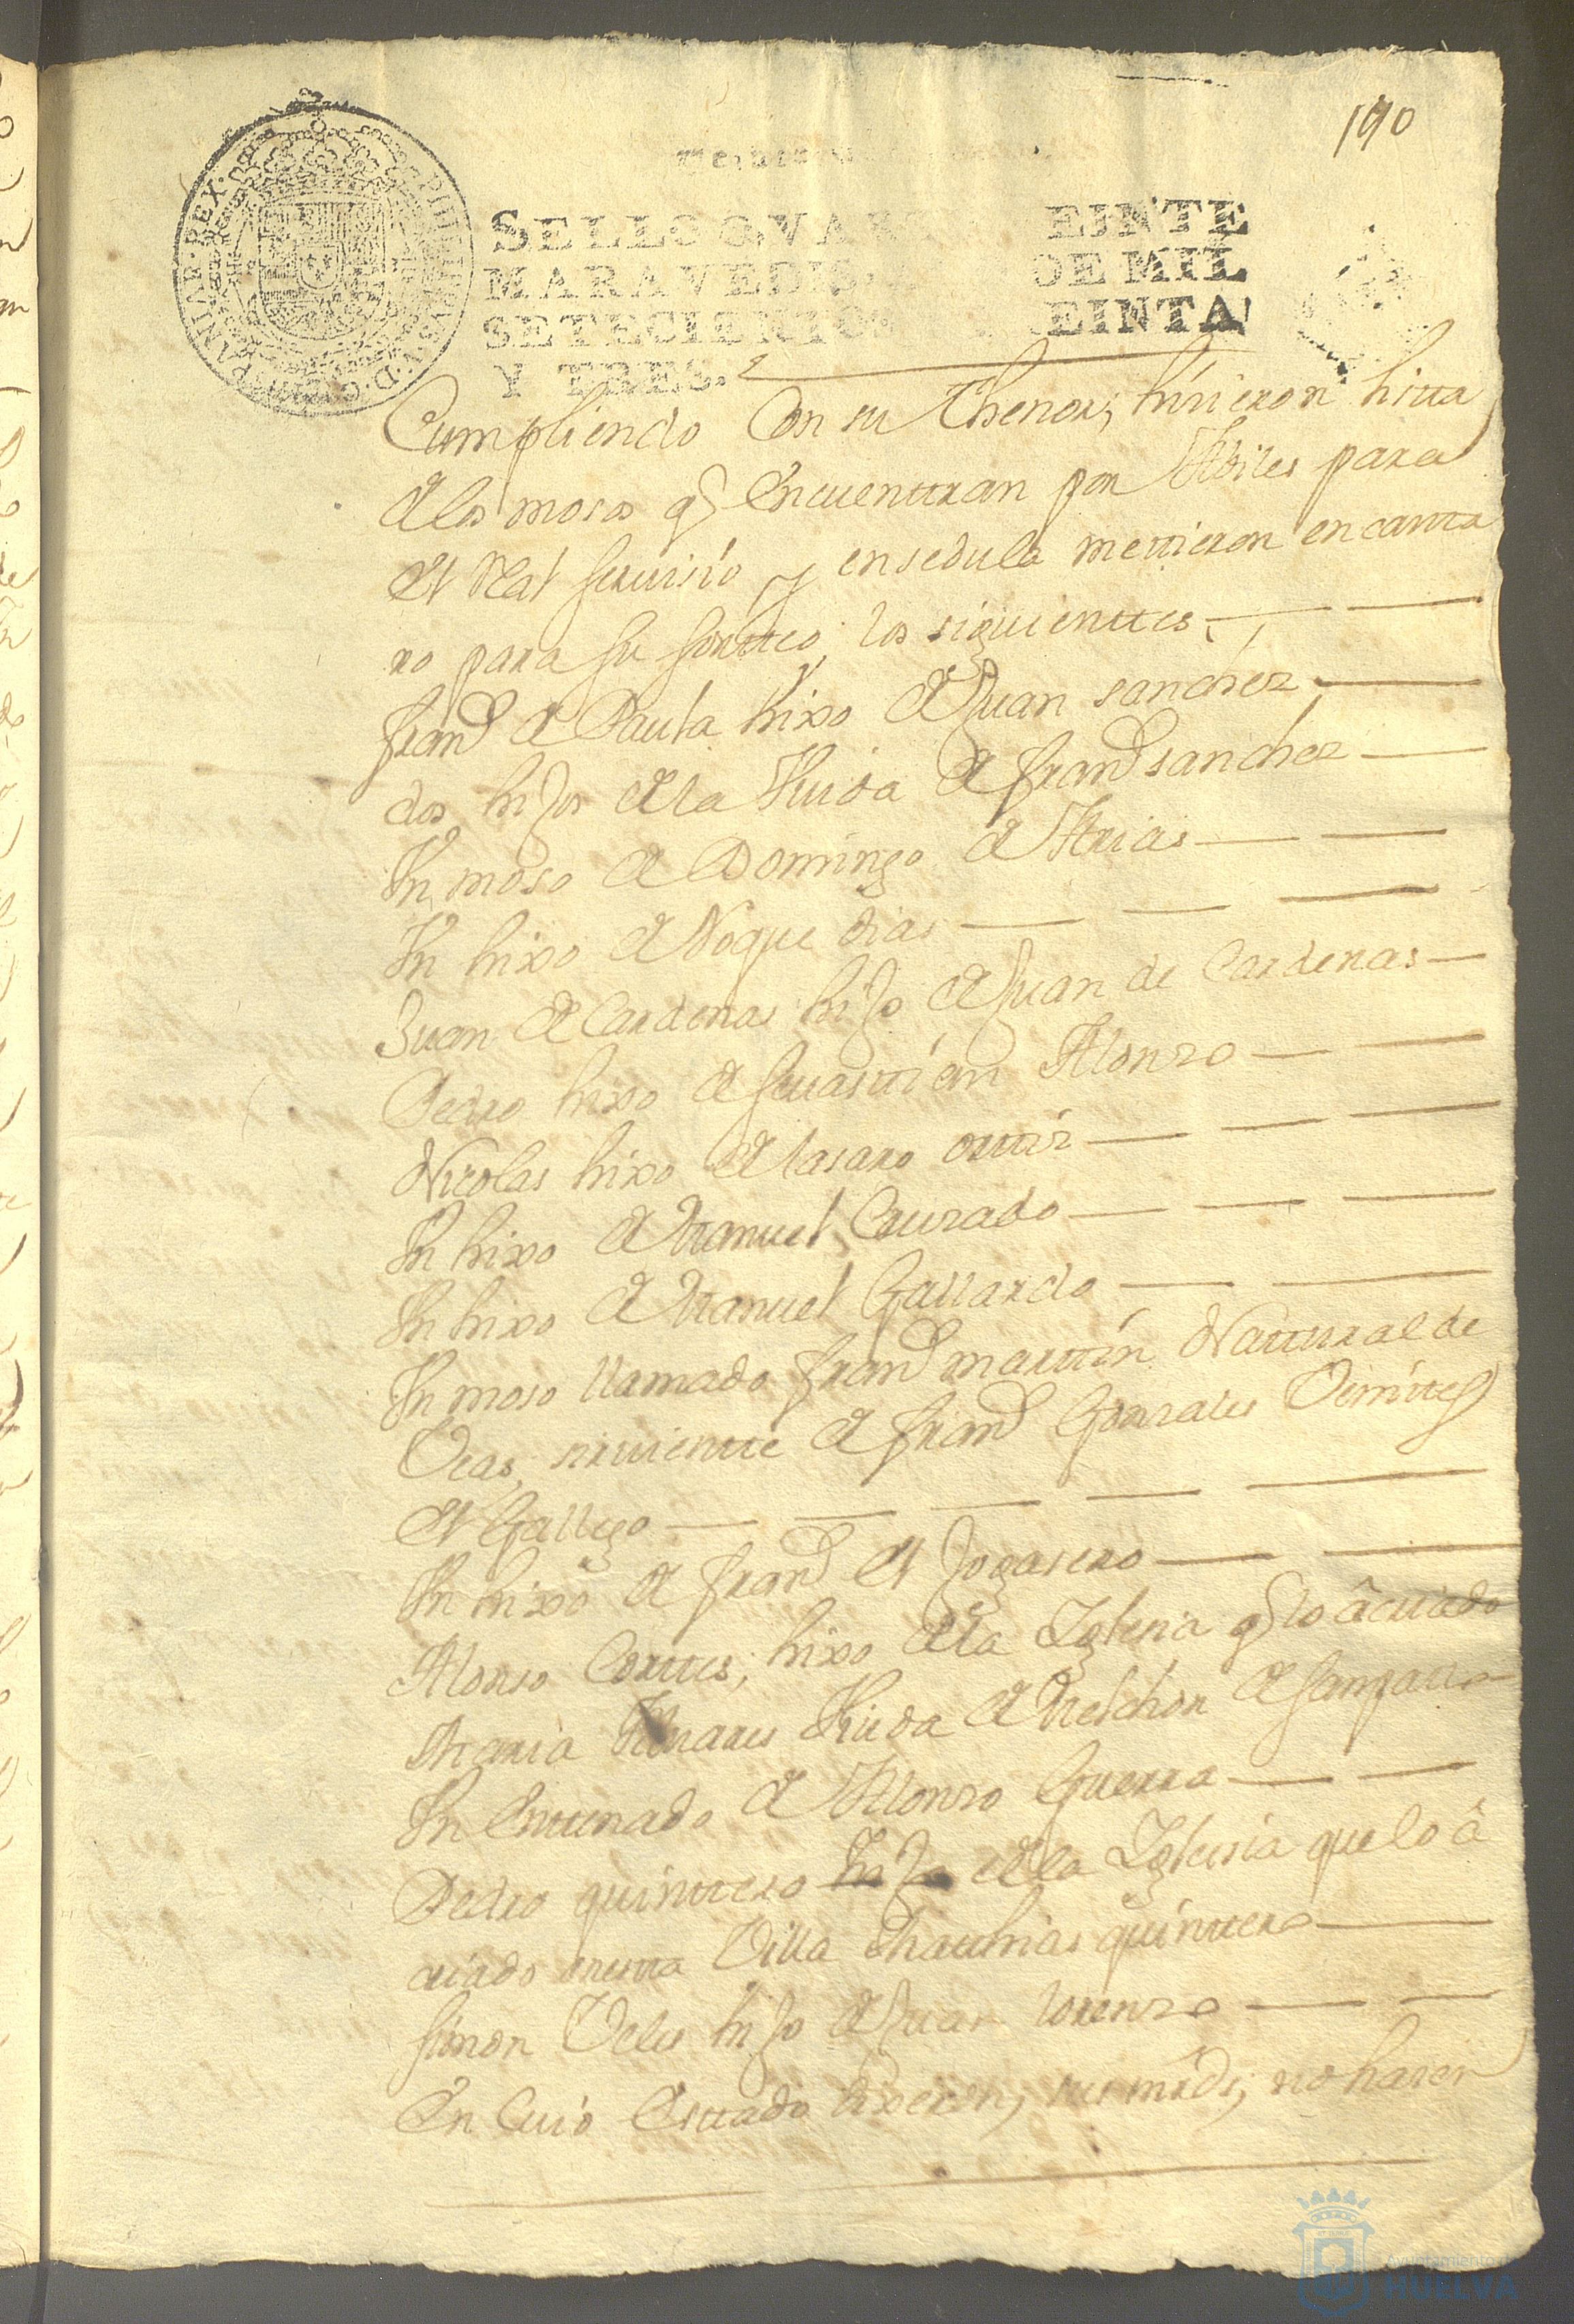 190
SELLO QVAR EINTE
MARAVEDIS, DE MIL
SETECIENTOS REINTA
Y TRES.
HISPANIAR. REX. PHILIPPVS. V. D. G.
Cumpliendo Con su thenor; hisieron lista
de los mosos q̃ encuentran por Abiles para
el Real servisio y ensedula metieron en canta
ro para su sortteo, los siguienttes
fran.co de Paula hixo de Juan sanchez
dos hijos de la Viuda de fran.co sanchez
Un moso de Domingo de Arias
Un hixo de Roque dias
Juan de Cardenas hijo de Juan de Cardenas
Pedro hixo de sevasttian Alonzo
Nicolas hixo de lasaro orttiz
Un hixo de Manuel Cruzado
Un hixo de Manuel Gallardo
Un moso llamado fran.co marttin Natural de
Veas, sirvientte de fran.co Gonzales Venites
el Gallego
Un hixo de fran.co el
Alonso Corttes, hixo de la Yglesia q̃ lo â criado
Maria Viuda de Melchor de
Un Entenado de Alonzo Guerra
Pedro quinttero hijo de la Yglesia que lo â
criado enestta Villa Mathias quinttero
simon Veles hijo de Juan lorenzo
En Cuio Esttado dixeron, sus mrds, no haver
Ayuntamiento de
HUELVA